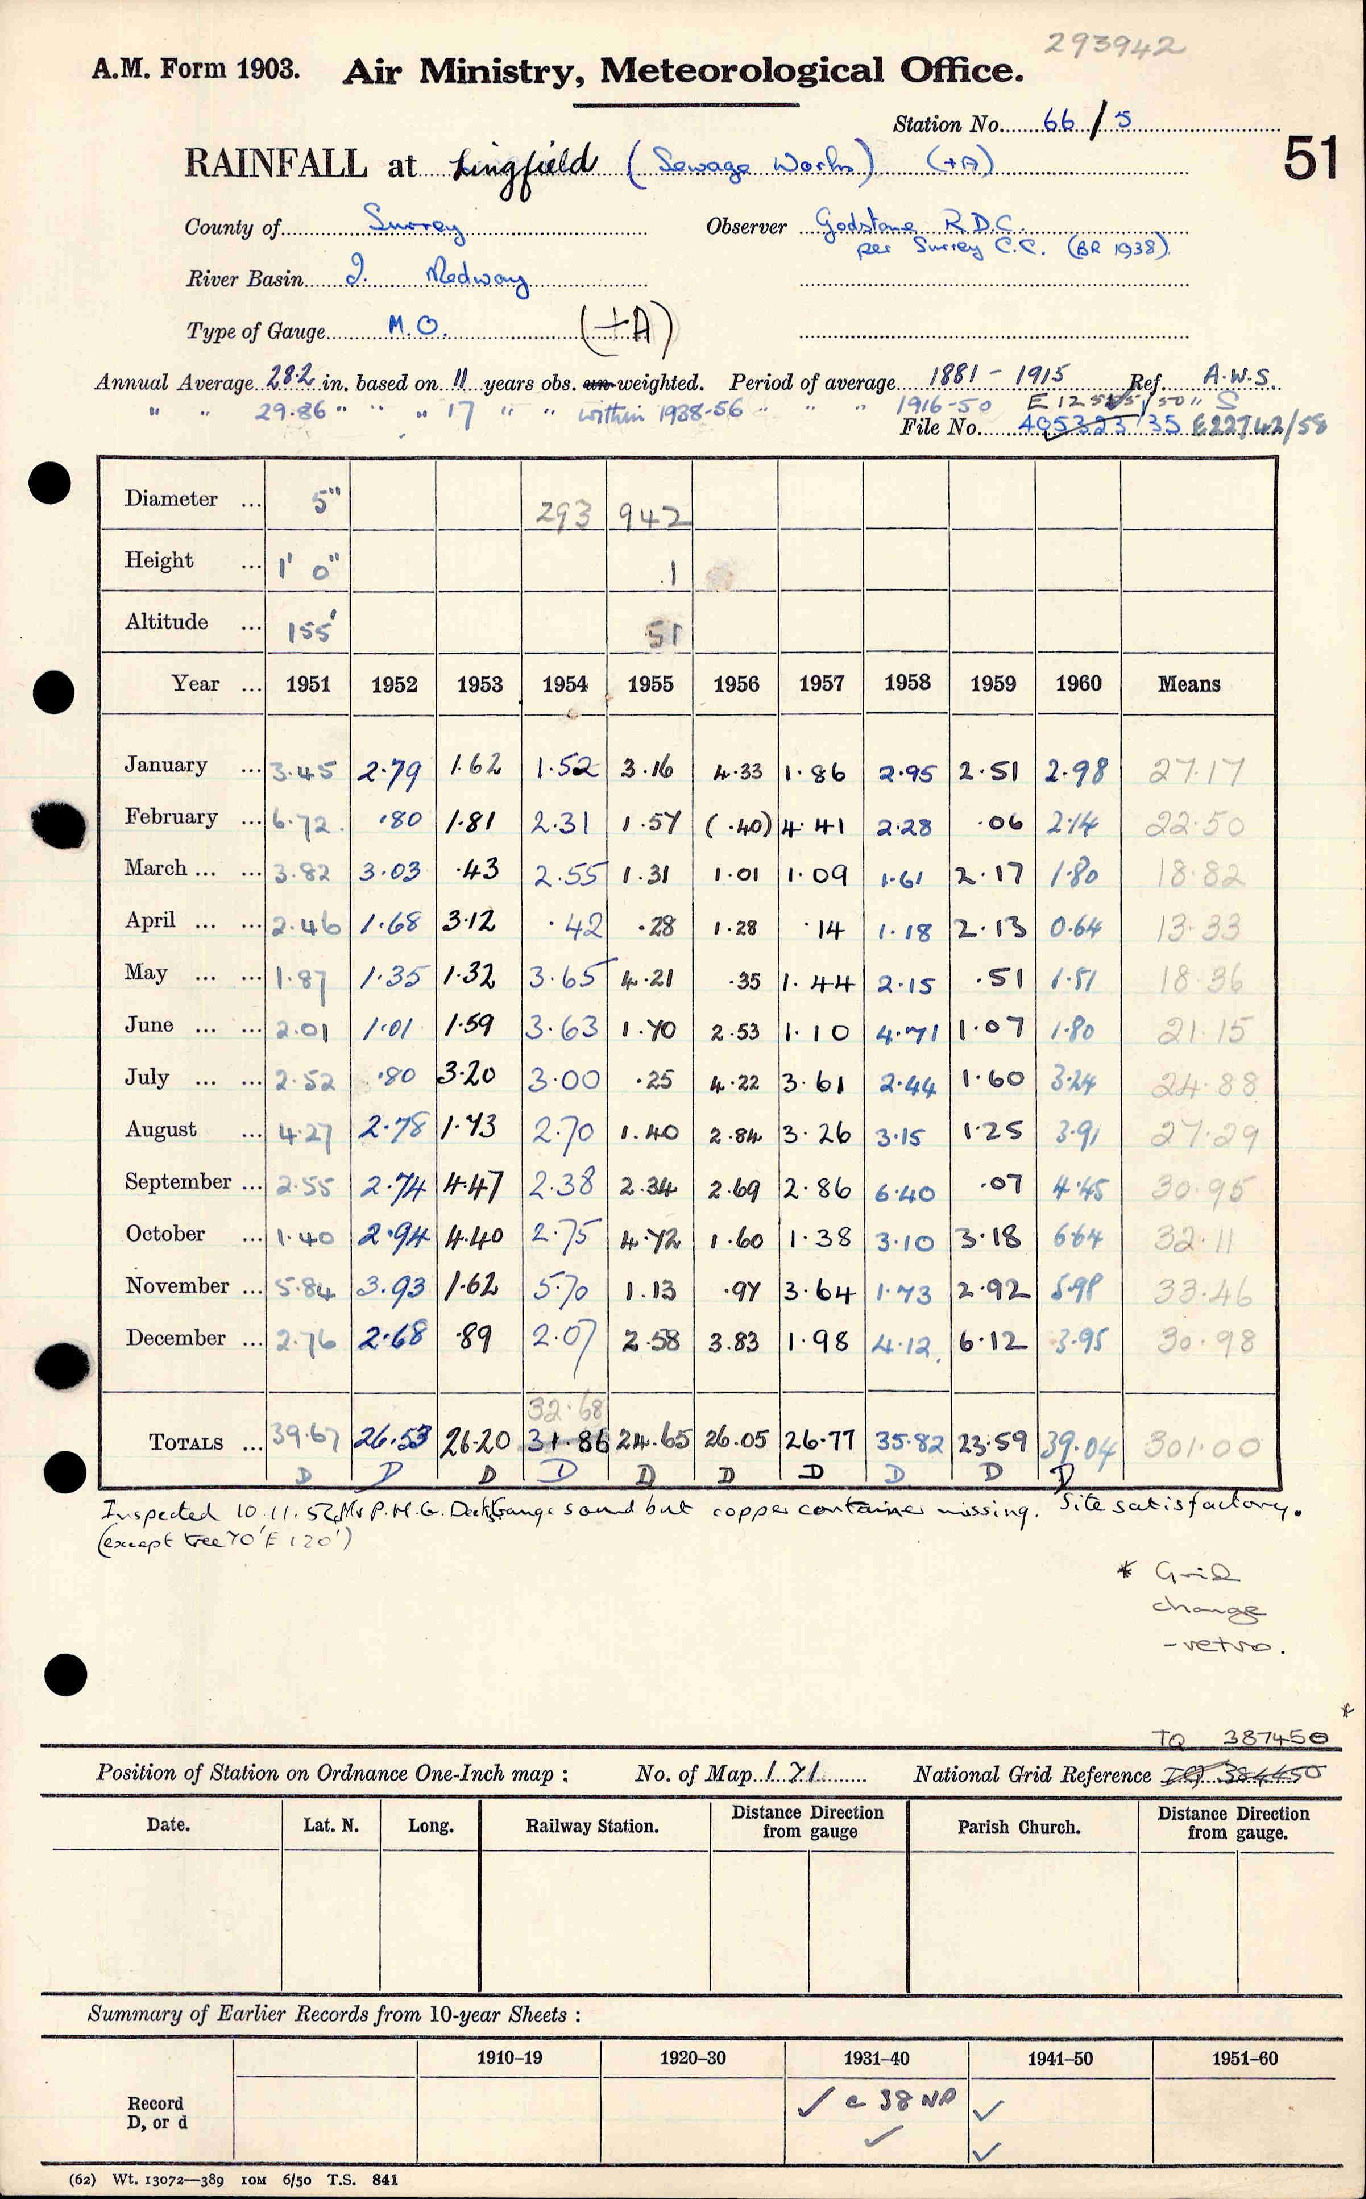 293942
A.M. Form 1903. Air Ministry, Meteorological Office.
Station No. 66/5
51
RAINFALL at Lingfield (Sewage Works) (+A)
County of Surrey Observer Godstone R.D.C.
per Surrey C.C. (BR 1938).
River Basin Medway
Type of Gauge M.O. (+A)
Annual Average 28.2 in. based on 11 years obs. un-weighted. Period of average 1881 - 1915 Ref. A.W.S.
" " 29.86 " " " 17 " " within 1938-56 " " " 1916-50
File No. 405323/35 E22742/58
Diameter ... 5" 293 942
Height ... 1' 0" 1
Altitude ... 155' 51
Year ... 1951 1952 1953 1954 1955 1956 1957 1958 1959 1960 Means
January ... 3.45 2.79 1.62 1.52 3.16 4.33 1.86 2.95 2.51 2.98 27.17
February ... 6.72 .80 1.81 2.31 1.57 (.40) 4.41 2.28 .06 2.14 22.50
March ... ... 3.82 3.03 .43 2.55 1.31 1.01 1.09 1.61 2.17 1.80 18.82
April ... ... 2.46 1.68 3.12 .42 .28 1.28 .14 1.18 2.13 0.64 13.33
May ... ... 1.87 1.35 1.32 3.65 4.21 .35 1.44 2.15 .51 1.51 18.36
June ... ... 2.01 1.01 1.59 3.63 1.70 2.53 1.10 4.71 1.07 1.80 21.15
July ... ... 2.52 .80 3.20 3.00 .25 4.22 3.61 2.44 1.60 3.24 24.88
August ... 4.27 2.78 1.73 2.70 1.40 2.84 3.26 3.15 1.25 3.91 27.29
September ... 2.55 2.74 4.47 2.38 2.34 2.69 2.86 6.40 .07 4.45 30.95
October ... 1.40 2.94 4.40 2.75 4.72 1.60 1.38 3.10 3.18 6.64 32.11
November ... 5.84 3.93 1.62 5.70 1.13 .97 3.64 1.73 2.92 5.98 33.46
December ... 2.76 2.68 .89 2.07 2.58 3.83 1.98 4.12 6.12 3.95 30.98
32.68
TOTALS ... 39.67 26.53 26.20 31.86 24.65 26.05 26.77 35.82 23.59 39.04 301.00
D D D D D D D D D D
Inspected 10.11.52 Mr P.M.G. Gauge sound but copper container missing. Site satisfactory.
(except tree 70' E 120')
* Grid
change
- retro.
*
TQ 387450
Position of Station on Ordnance One-Inch map : No. of Map 171 National Grid Reference TQ 384450
Date. Lat. N. Long. Railway Station. Distance Direction from gauge Parish Church. Distance Direction from gauge.
Summary of Earlier Records from 10-year Sheets :
1910–19 1920–30 1931–40 1941–50 1951–60
Record
D, or d
✓ c 38 ND ✓
✓ ✓
(62) Wt. 13072—389 10M 6/50 T.S. 841